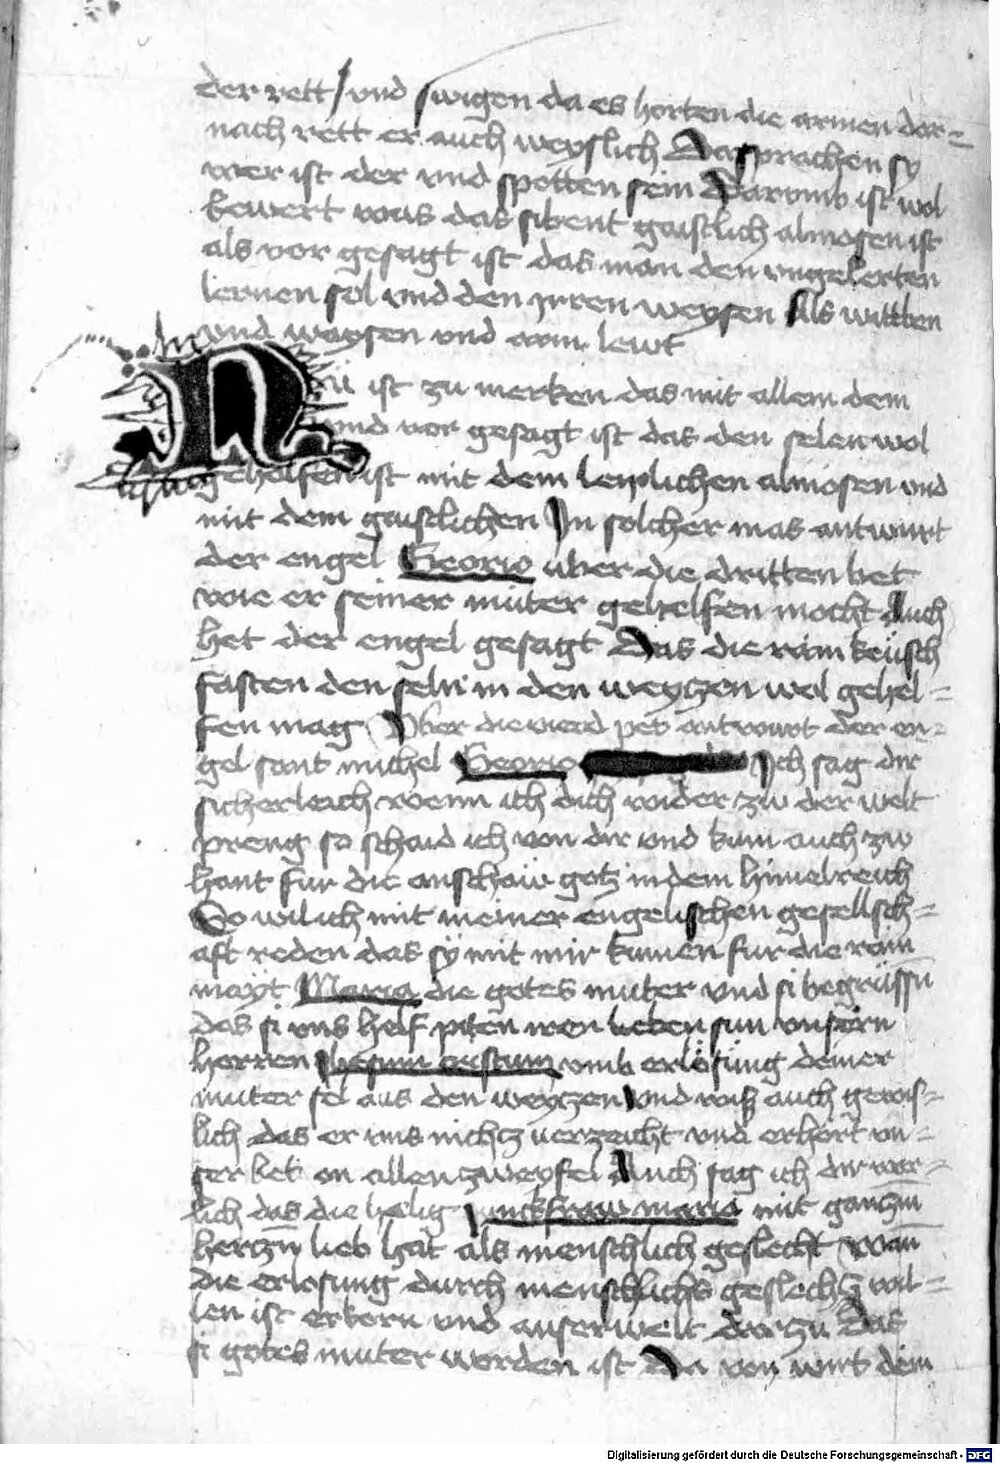 der rett / vnd swigen da es horten die armen dar=
nach rett er auch weyslich Da sprachen sy
wer ist der vnd spotten sein Darvmb ist wol
bewert was das sibent gaistlich almosen ist
als vor gesagt ist das man den vngelerten
lernen sol vnd den jrren weysen Als wittben
vnd waysen vnd arm lewt
Nu ist zu merken das mit allem dem
vnd vor gesagt ist das den selen wol
geholfen ist mit dem leyplichen almosen vnd
mit dem gaistlichen In solcher mas antwurt
der engel Georio vber die dritten bet
wie er seiner muter gehelfen mocht Auch
het der engel gesagt Das die rain keüsch
fasten den seln in den weytzen wol gehel=
fen mag Vber die vierd pet antwort der en=
gel sant michel Georio Ich sag dir
sicherleich wenn ich dich wider zu der welt
preng so schaid ich von dir vnd kum auch zu
hant fur die anschaw gotz in dem himelreich
So wil ich mit meiner engelischen gesellsch=
aft reden das sy mit mir kumen fur die rain
mayt Maria die gotes muter vnd si begrüssn
das si vns helf piten iren lieben sun vnsern
herren jhesum cristum vmb erlösüng deiner
muter sel aus den weytzen vnd wiß auch gewis=
lich das er vns nichtz verzeicht vnd erhört vn=
ser bet on allen zweyfel Auch sag ich dir war=
lich das die heilig junckfraw maria mit gantzm
hertzn lieb hat als menschlich geslecht wan
die erlosung durch menschlichs geslechtz wil=
len ist erkorn vnd auserwelt darzu Das
si gotes muter worden ist Da von wirt dem
Digitalisierung gefördert durch die Deutsche Forschungsgemeinschaft - DFG